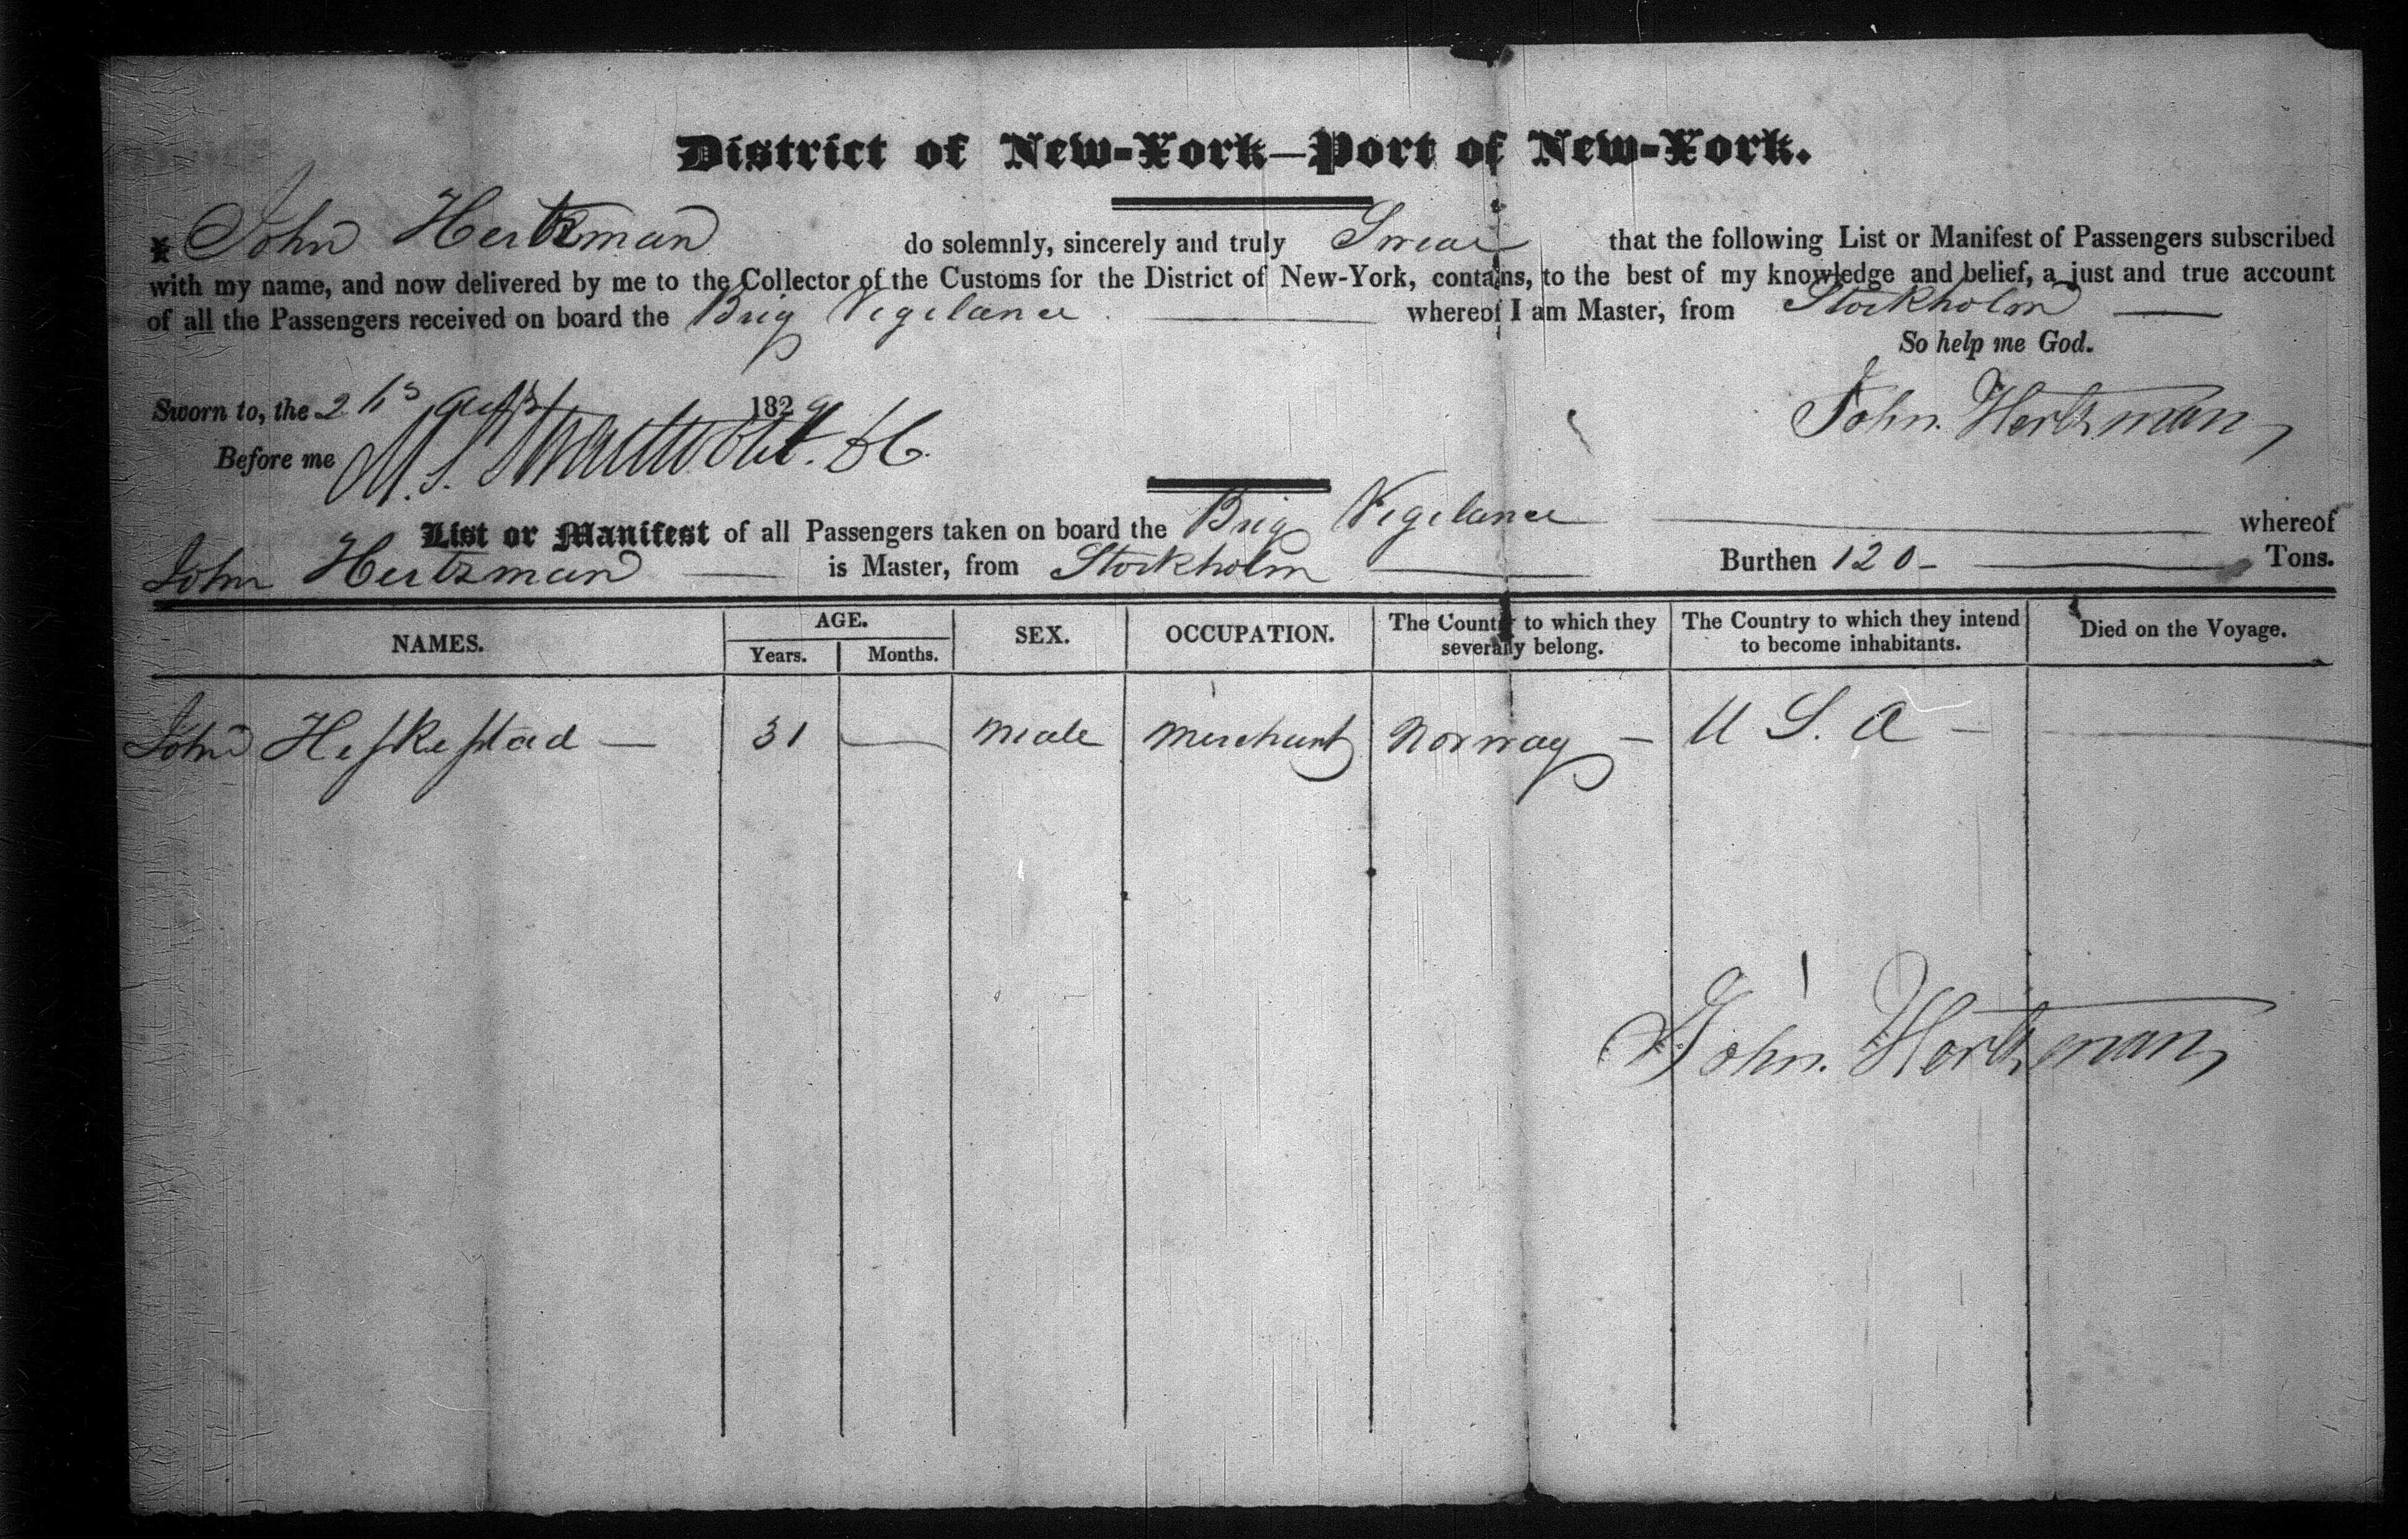 District of New-York—Port of New-York.
I John Hertzman do solemnly, sincerely and truly Swear that the following List or Manifest of Passengers subscribed
with my name, and now delivered by me to the Collector of the Customs for the District of New-York, contains, to the best of my knowledge and belief, a just and true account
of all the Passengers received on board the Brig Vigelance whereof I am Master, from Stockholm
So help me God.
Sworn to, the 1829
John. Hertzman
Before me M. S.
List or Manifest of all Passengers taken on board the Brig Vigelance whereof
John Hertzman is Master, from Stockholm Burthen 120 - Tons.
NAMES. AGE. SEX. OCCUPATION. The Country to which they severally belong. The Country to which they intend to become inhabitants. Died on the Voyage.
Years. Months.
John Heskestad — 31 — Male Merchant Norway - U S. A -
John. Hertzman